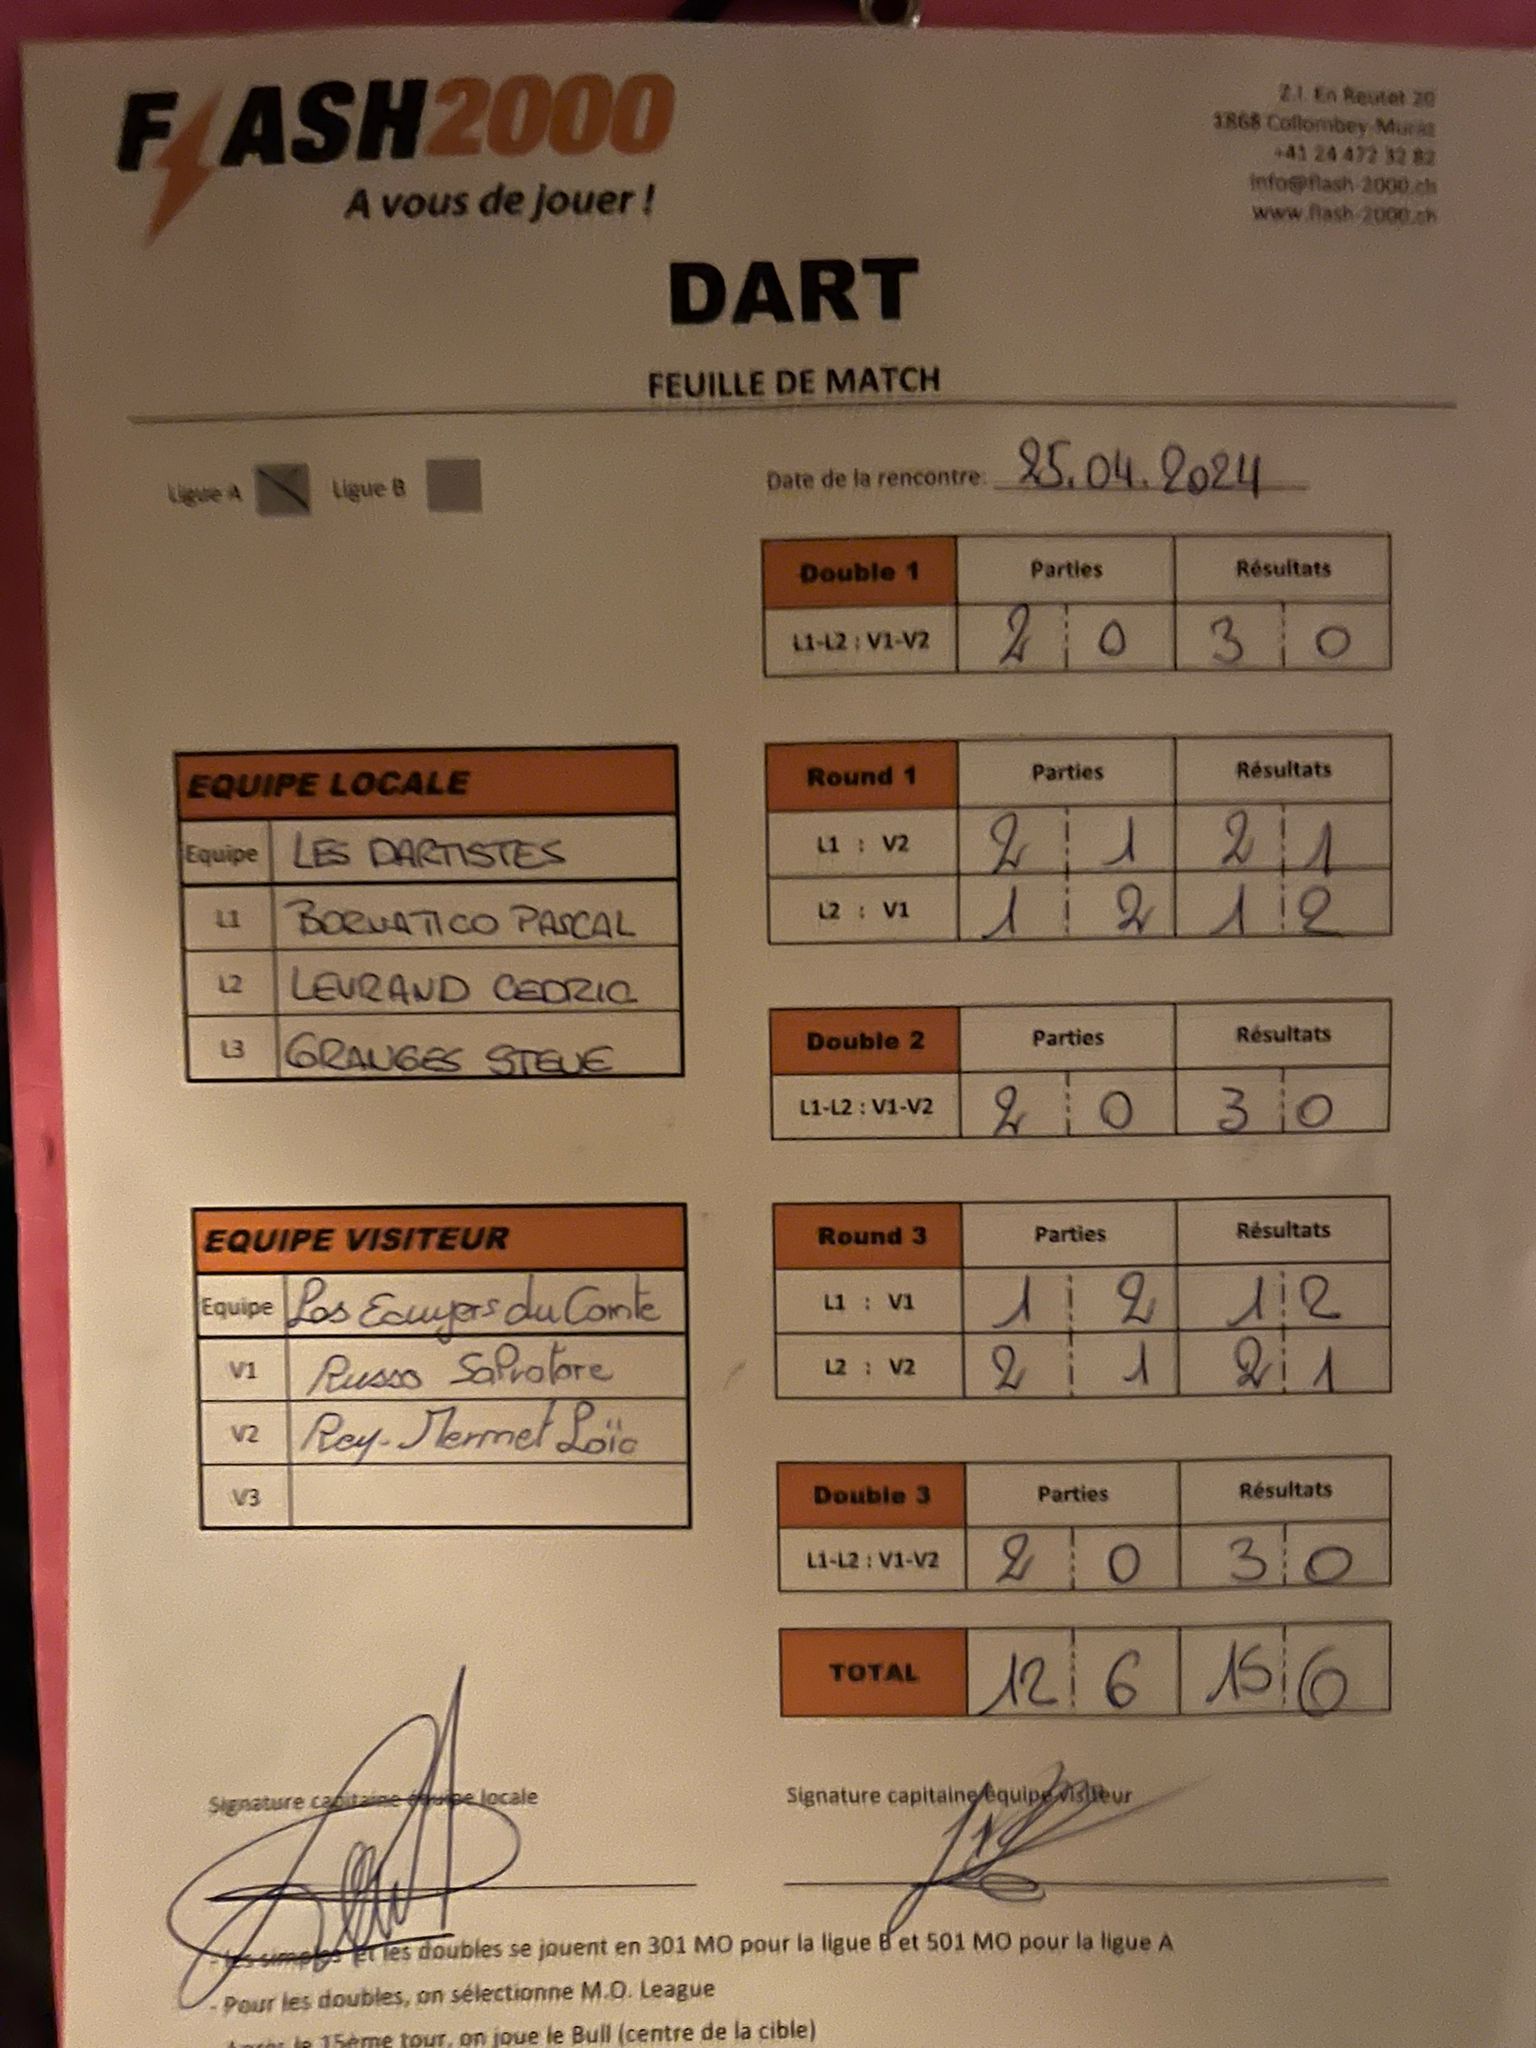 FLASH2000
A vous de jouer !
Z.I. En Reutet 20
1868 Collombey-Muraz
+41 24 472 32 82
info@flash-2000.ch
www.flash-2000.ch
DART
FEUILLE DE MATCH
Ligue A Ligue B
Date de la rencontre: 25.04.2024
Double 1 Parties Résultats
L1-L2 : V1-V2 2 0 3 0
EQUIPE LOCALE
Equipe LES DARTISTES
L1 BORNATICO PASCAL
L2 LEVRAND CEDRIC
L3 GRANGES STEVE
Round 1 Parties Résultats
L1 : V2 2 1 2 1
L2 : V1 1 2 1 2
Double 2 Parties Résultats
L1-L2 : V1-V2 2 0 3 0
EQUIPE VISITEUR
Equipe Les Ecuyers du Comte
V1 Russo Salvatore
V2 Rey-Mermet Loïc
V3
Round 3 Parties Résultats
L1 : V1 1 2 1 2
L2 : V2 2 1 2 1
Double 3 Parties Résultats
L1-L2 : V1-V2 2 0 3 0
TOTAL 12 6 15 6
Signature capitaine équipe locale
Signature capitaine équipe visiteur
- Les simples et les doubles se jouent en 301 MO pour la ligue B et 501 MO pour la ligue A
- Pour les doubles, on sélectionne M.O. League
- Après le 15ème tour, on joue le Bull (centre de la cible)